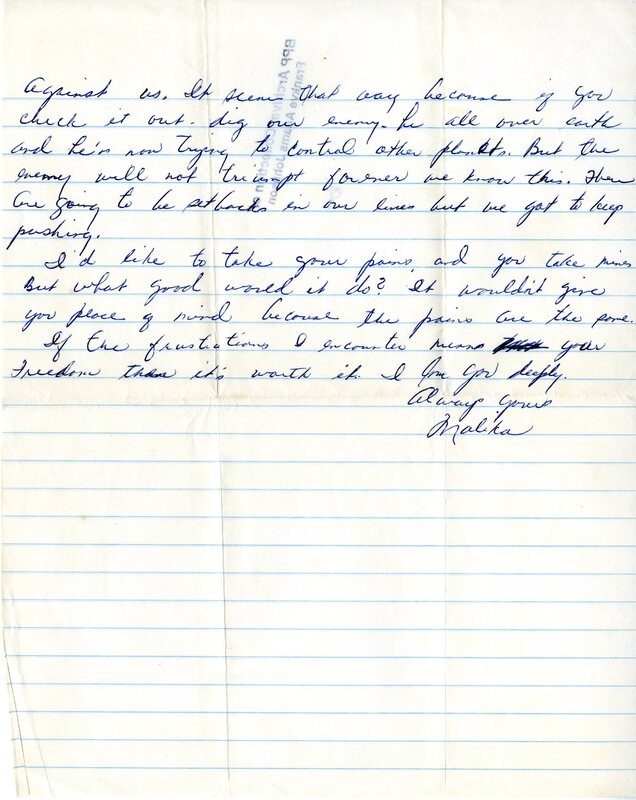 against us. It seem that way because if you
check it out. dig our enemy. he all over earth
and he's now trying to control other planets. But the
enemy will not triumpt forever we know this. There
are going to be setbacks in our lives but we got to keep
pushing.
I'd like to take your pains, and you take mines
But what good would it do? It wouldn't give
you peace of mind because the pains are the same.
If the frustrations I encounter means your
Freedom then it's worth it. I love you deeply.
Always yours
Malika
BPP Archi
Frankye Adams Johnson